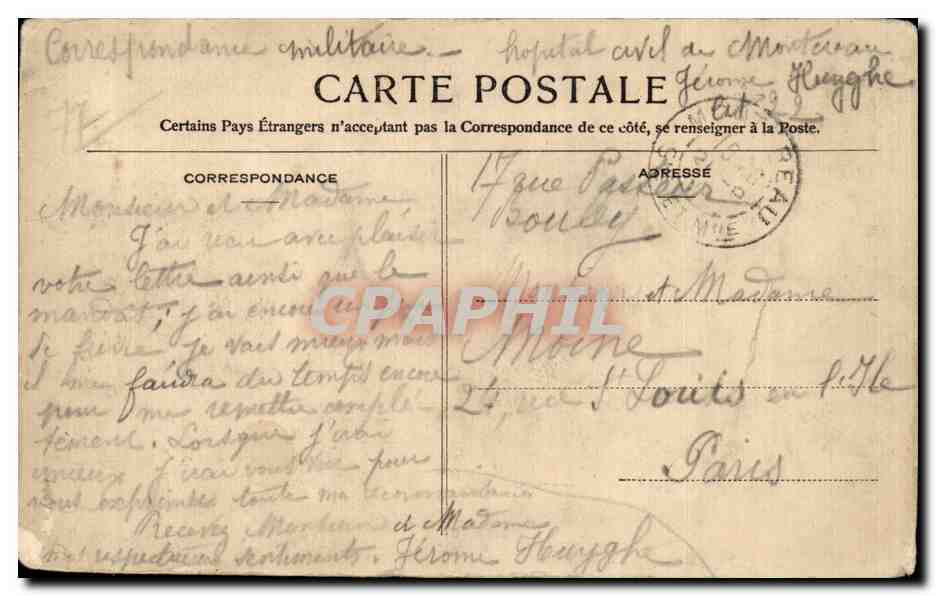 Correspondance militaire. - hopital civil de Montereau
Jérome Huyghe
lit 29
17
CARTE POSTALE
Certains Pays Étrangers n'acceptant pas la Correspondance de ce côté, se renseigner à la Poste.
CORRESPONDANCE
Monsieur et Madame
J'ai reçu avec plaisir
votre lettre ainsi que le
mandat, j'ai encore un peu
de fièvre je vais mieux mais
il me faudra du temps encore
pour me remettre complè-
tement. Lorsque j'irai
mieux j'irai vous voir pour
vous exprimer toute ma reconnaissance
Recevez Monsieur et Madame
mes respectueux sentiments. Jérome Huyghe
ADRESSE
17 rue Pasteur
REAU
S. ET MNE
Monsieur et Madame
Moine
24, rue St Louis en l'Ile
Paris
CPAPHIL